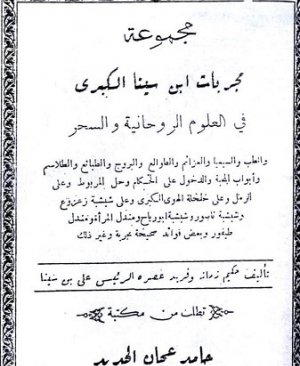 مجموعة
مجربات ابن سينا الكبرى
في العلوم الروحانية والسحر
والطب والسيميا والعزائم والطوالع والبروج والطبائع والطلاسم
وأبواب المحبة والدخول على الحكام وحل المربوط وعلى
الرمل وعلى خلخلة الهوى الكبرى وعلى شيشبة زعزوع
وشيشبة ناسور وشيشبة ابورياح ومندل المرأة ومندل
طيفور وبعض فوائد صحيحة مجربة وغير ذلك
تأليف حكيم زمانه وفريد عصره الرئيس على بن سينا
تطلب من مكتبة
حامد عجان الحديد